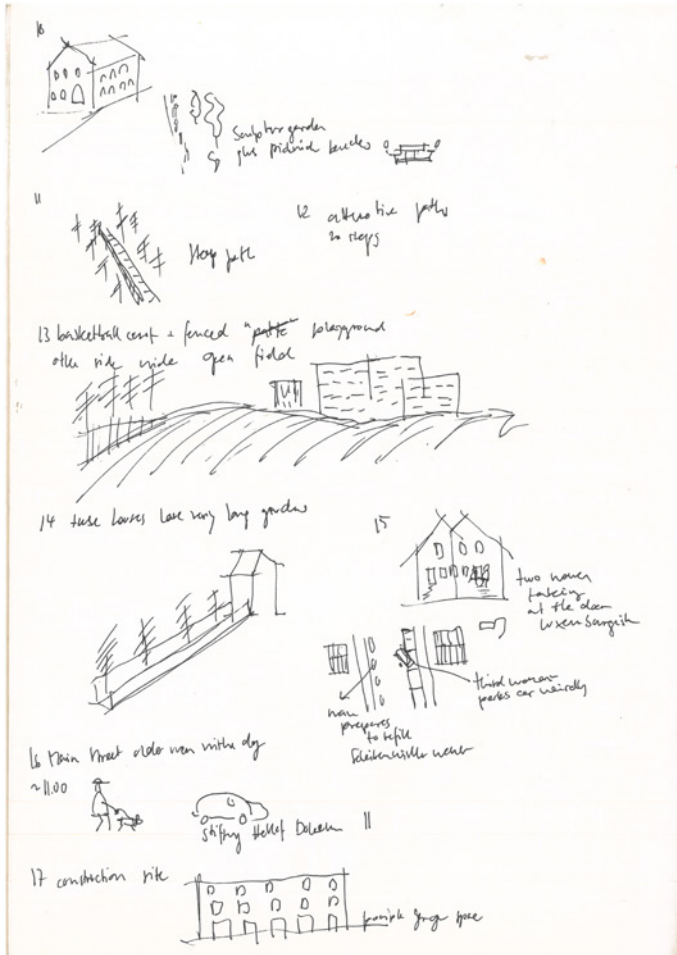 10
Sculpture garden
plus picknick benches
11
Steep path
12 alternative paths
to steps
13 basketball court + fenced "" playground
other side wide open field
14 these houses have very long gardens
15
two women
talking
at the door
Luxemburgish
third woman
parks car weirdly
man
prepares
to refill
Scheibenwischer water
16 Main Street older man with dog
~11.00
Stiftung Hellef Doheem
17 construction site
possible garage space